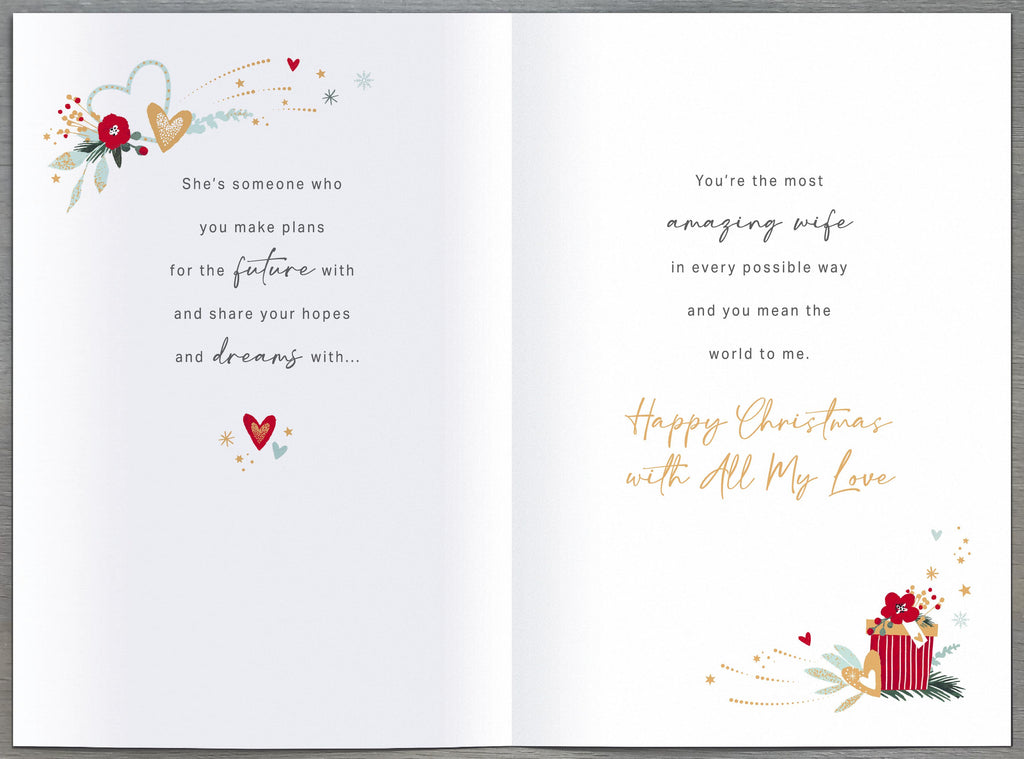 She's someone who
you make plans
for the future with
and share your hopes
and dreams with...
You're the most
amazing wife
in every possible way
and you mean the
world to me.
Happy Christmas
with All My Love